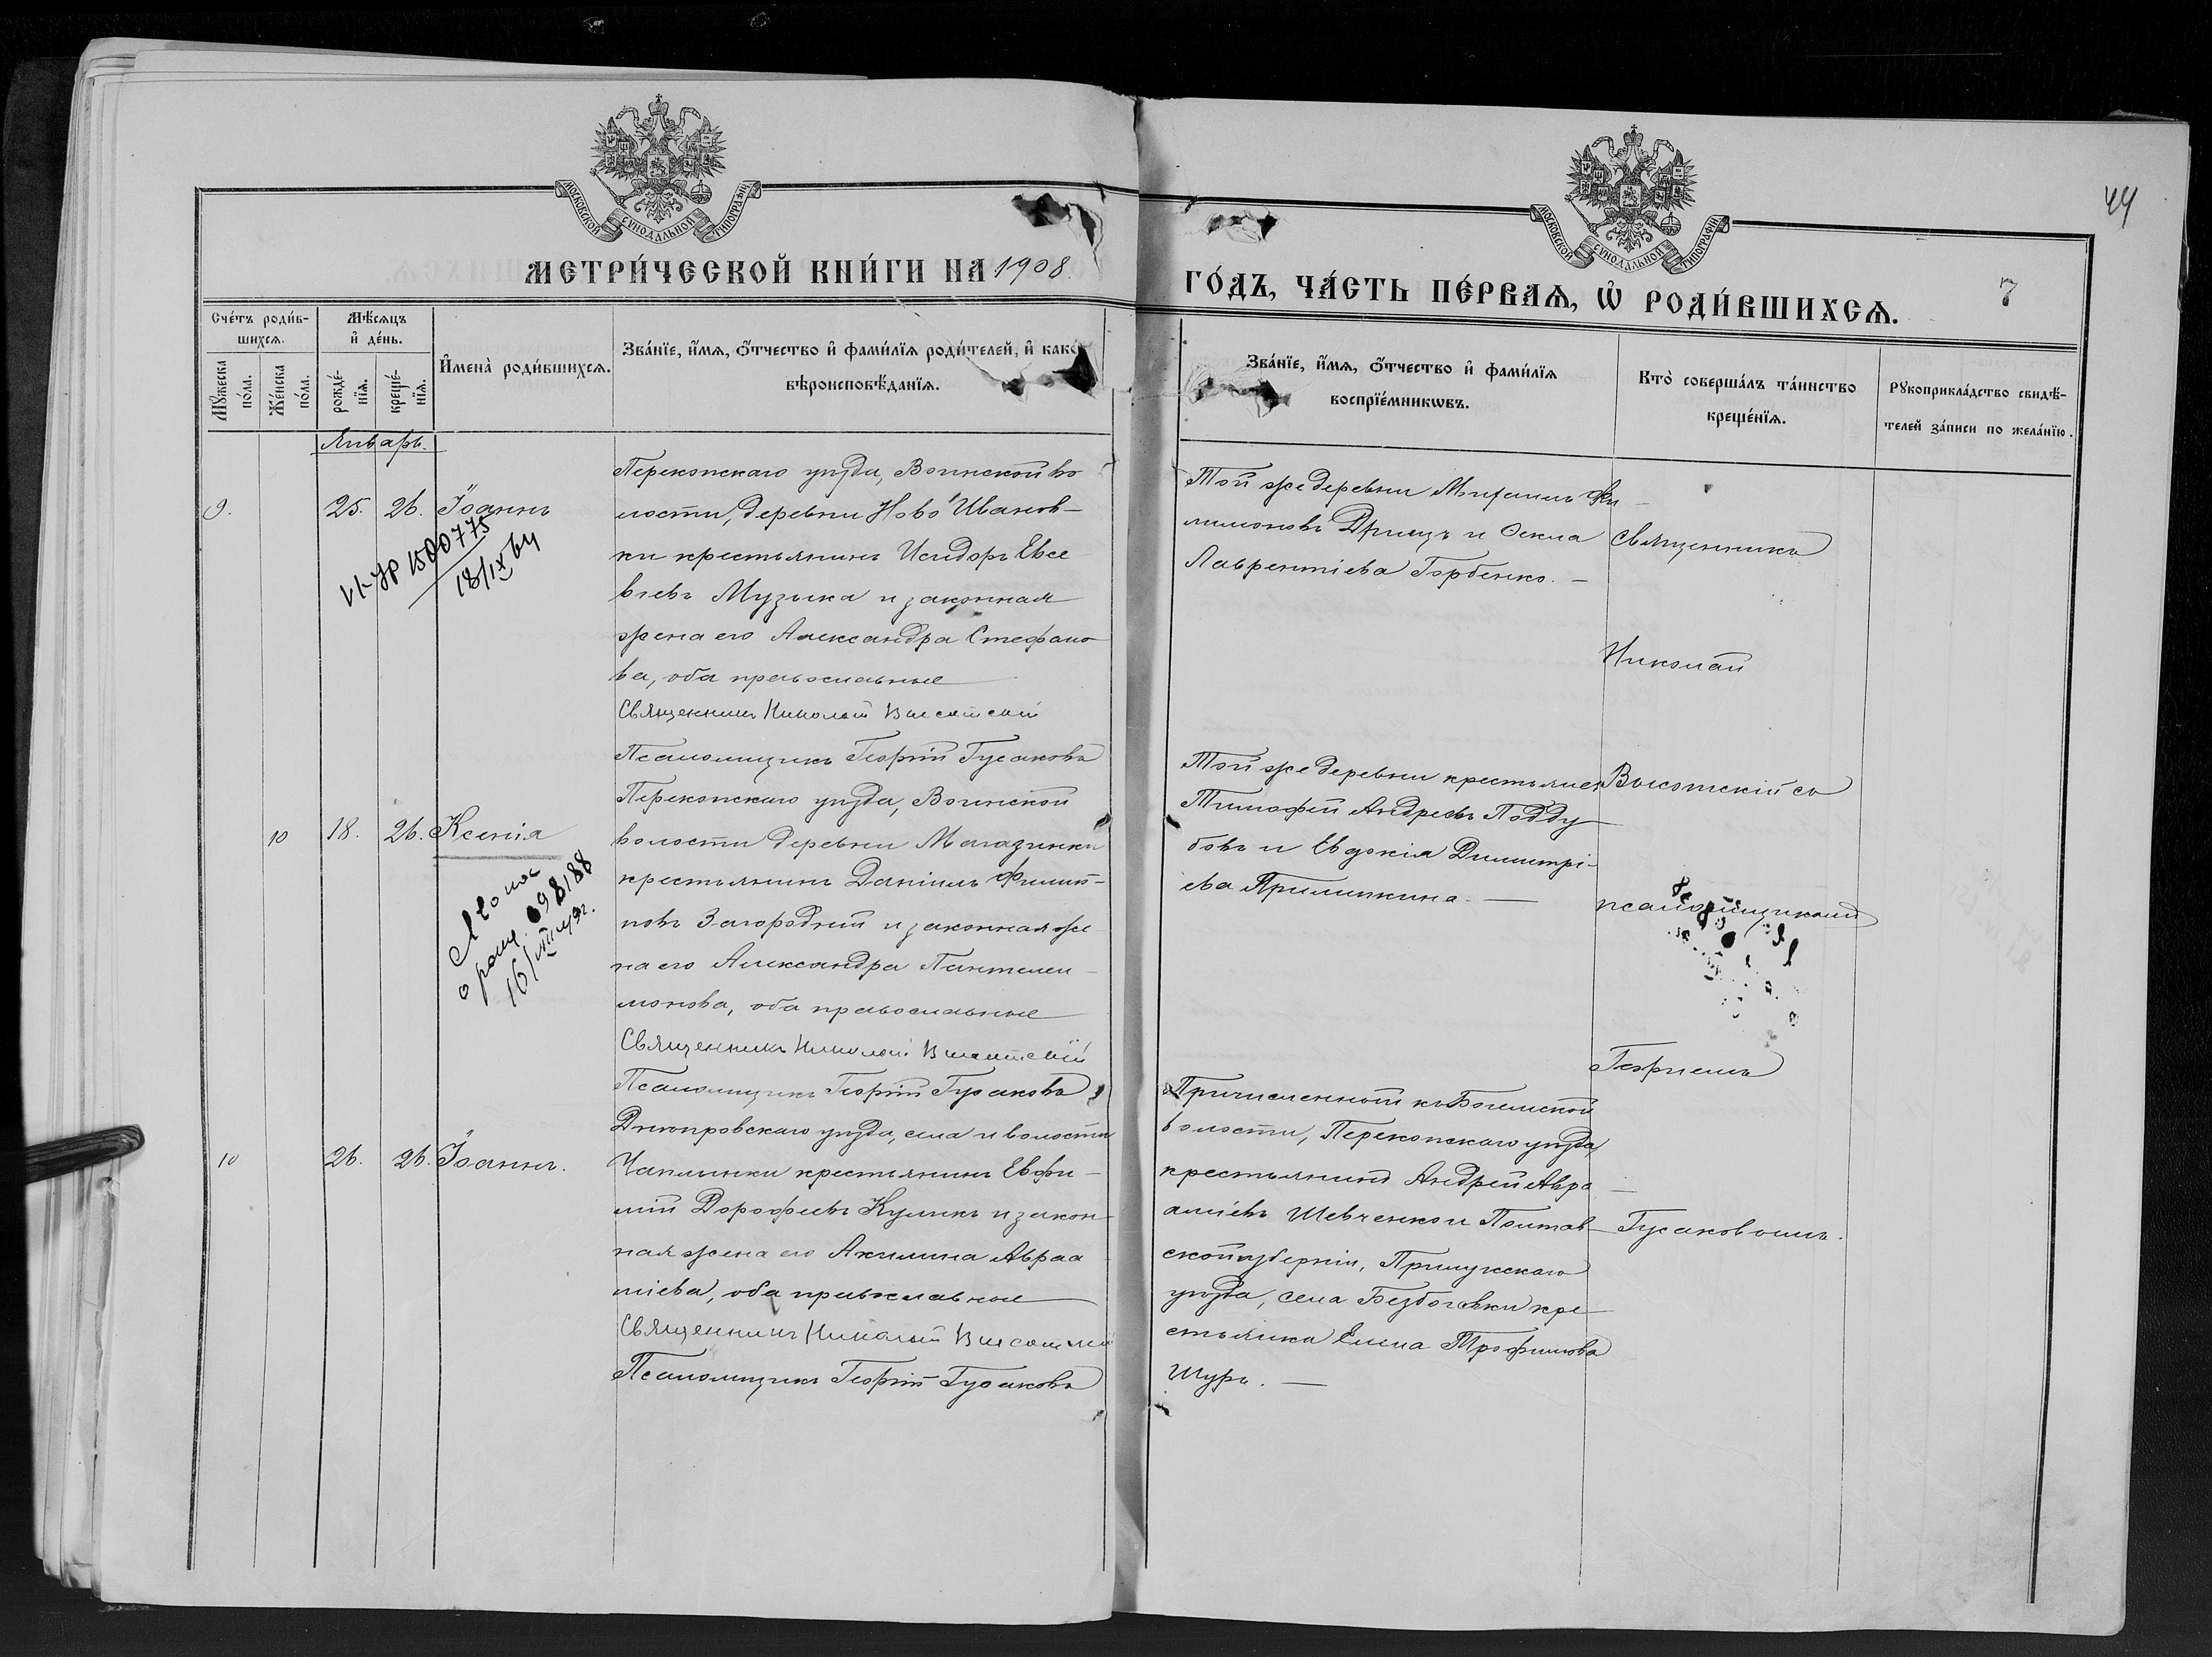 МОСКОВСКОЙ СѴНОДАЛЬНОЙ ТИПОГРАФІИ
МОСКОВСКОЙ СѴНОДАЛЬНОЙ ТИПОГРАФІИ
44
МЕТРИ́ЧЕСКОЙ КНИ́ГИ НА 1908.
ГО́ДЪ, ЧА́СТЬ ПЕ́РВАѦ, Ѡ҆ РОДИ́ВШИХСѦ.
7
Сче́тъ роди́в-
шихсѧ.
Мꙋ́жеска по́ла.
Же́нска по́ла.
Мѣ́сѧцъ
и҆ де́нь.
рожде́-
нїѧ.
креще́-
нїѧ.
И҆мена̀ роди́вшихсѧ.
Зва́нїе, и҆́мѧ, ѻ҆́тчество и҆ фами́лїѧ роди́телей, и҆ како́
вѣроисповѣ́данїѧ.
Зва́нїе, и҆́мѧ, ѻ҆́тчество и҆ фами́лїѧ
воспрїе́мникѡвъ.
Кто̀ соверша́лъ та́инство
креще́нїѧ.
Рꙋкоприкла́дство свидѣ́-
телей за́писи по жела́нїю.
Январь.
9.
25.
26.
Іоаннъ
VI-УР 1500775
18/IX 64
Перекопскаго уѣзда, Воинской во
лости, деревни Ново Иванов-
ки крестьянинъ Исидоръ Евсе
віевъ Музыка и законная
жена его Александра Стефано
ва, оба православные
Священникъ Николай Высотскій
Псаломщикъ Георгій Гусаковъ
Той же деревни Михаилъ Фи-
лимоновъ Дрищъ и Ѳекла
Лаврентіева Горбенко. –
Священникъ
Николай
10
18.
26.
Ксенія
16/VIII
Перекопскаго уѣзда, Воинской
волости деревни Магазинки
крестьянинъ Даніилъ Филип-
повъ Загородній и законная же
на его Александра Пантелеи-
монова, оба православные
Священникъ Николай Высотскій
Псаломщикъ Георгій Гусаковъ
Той же деревни крестьяне
Тимофей Андреевъ Подду
бовъ и Евдокія Димитрі-
ева Прилипкина. –
Высотскій съ
псаломщикомъ
Георгіемъ
10
26.
26.
Іоаннъ.
Днѣпровскаго уѣзда, села и волости
Чаплинки крестьянинъ Евфи-
мій Дорофеевъ Куликъ и закон-
ная жена его Акилина Авраа
міева, оба православные
Священникъ Николай Высотскій
Псаломщикъ Георгій Гусаковъ
Причисленный къ Богемской
волости, Перекопскаго уѣзда,
крестьянинъ Андрей Авра-
аміевъ Шевченко и Полтав-
ской губерніи, Прилукскаго
уѣзда, села Безбоговки кре-
стьянка Елена Трофимова
Щуръ. –
Гусаковымъ.